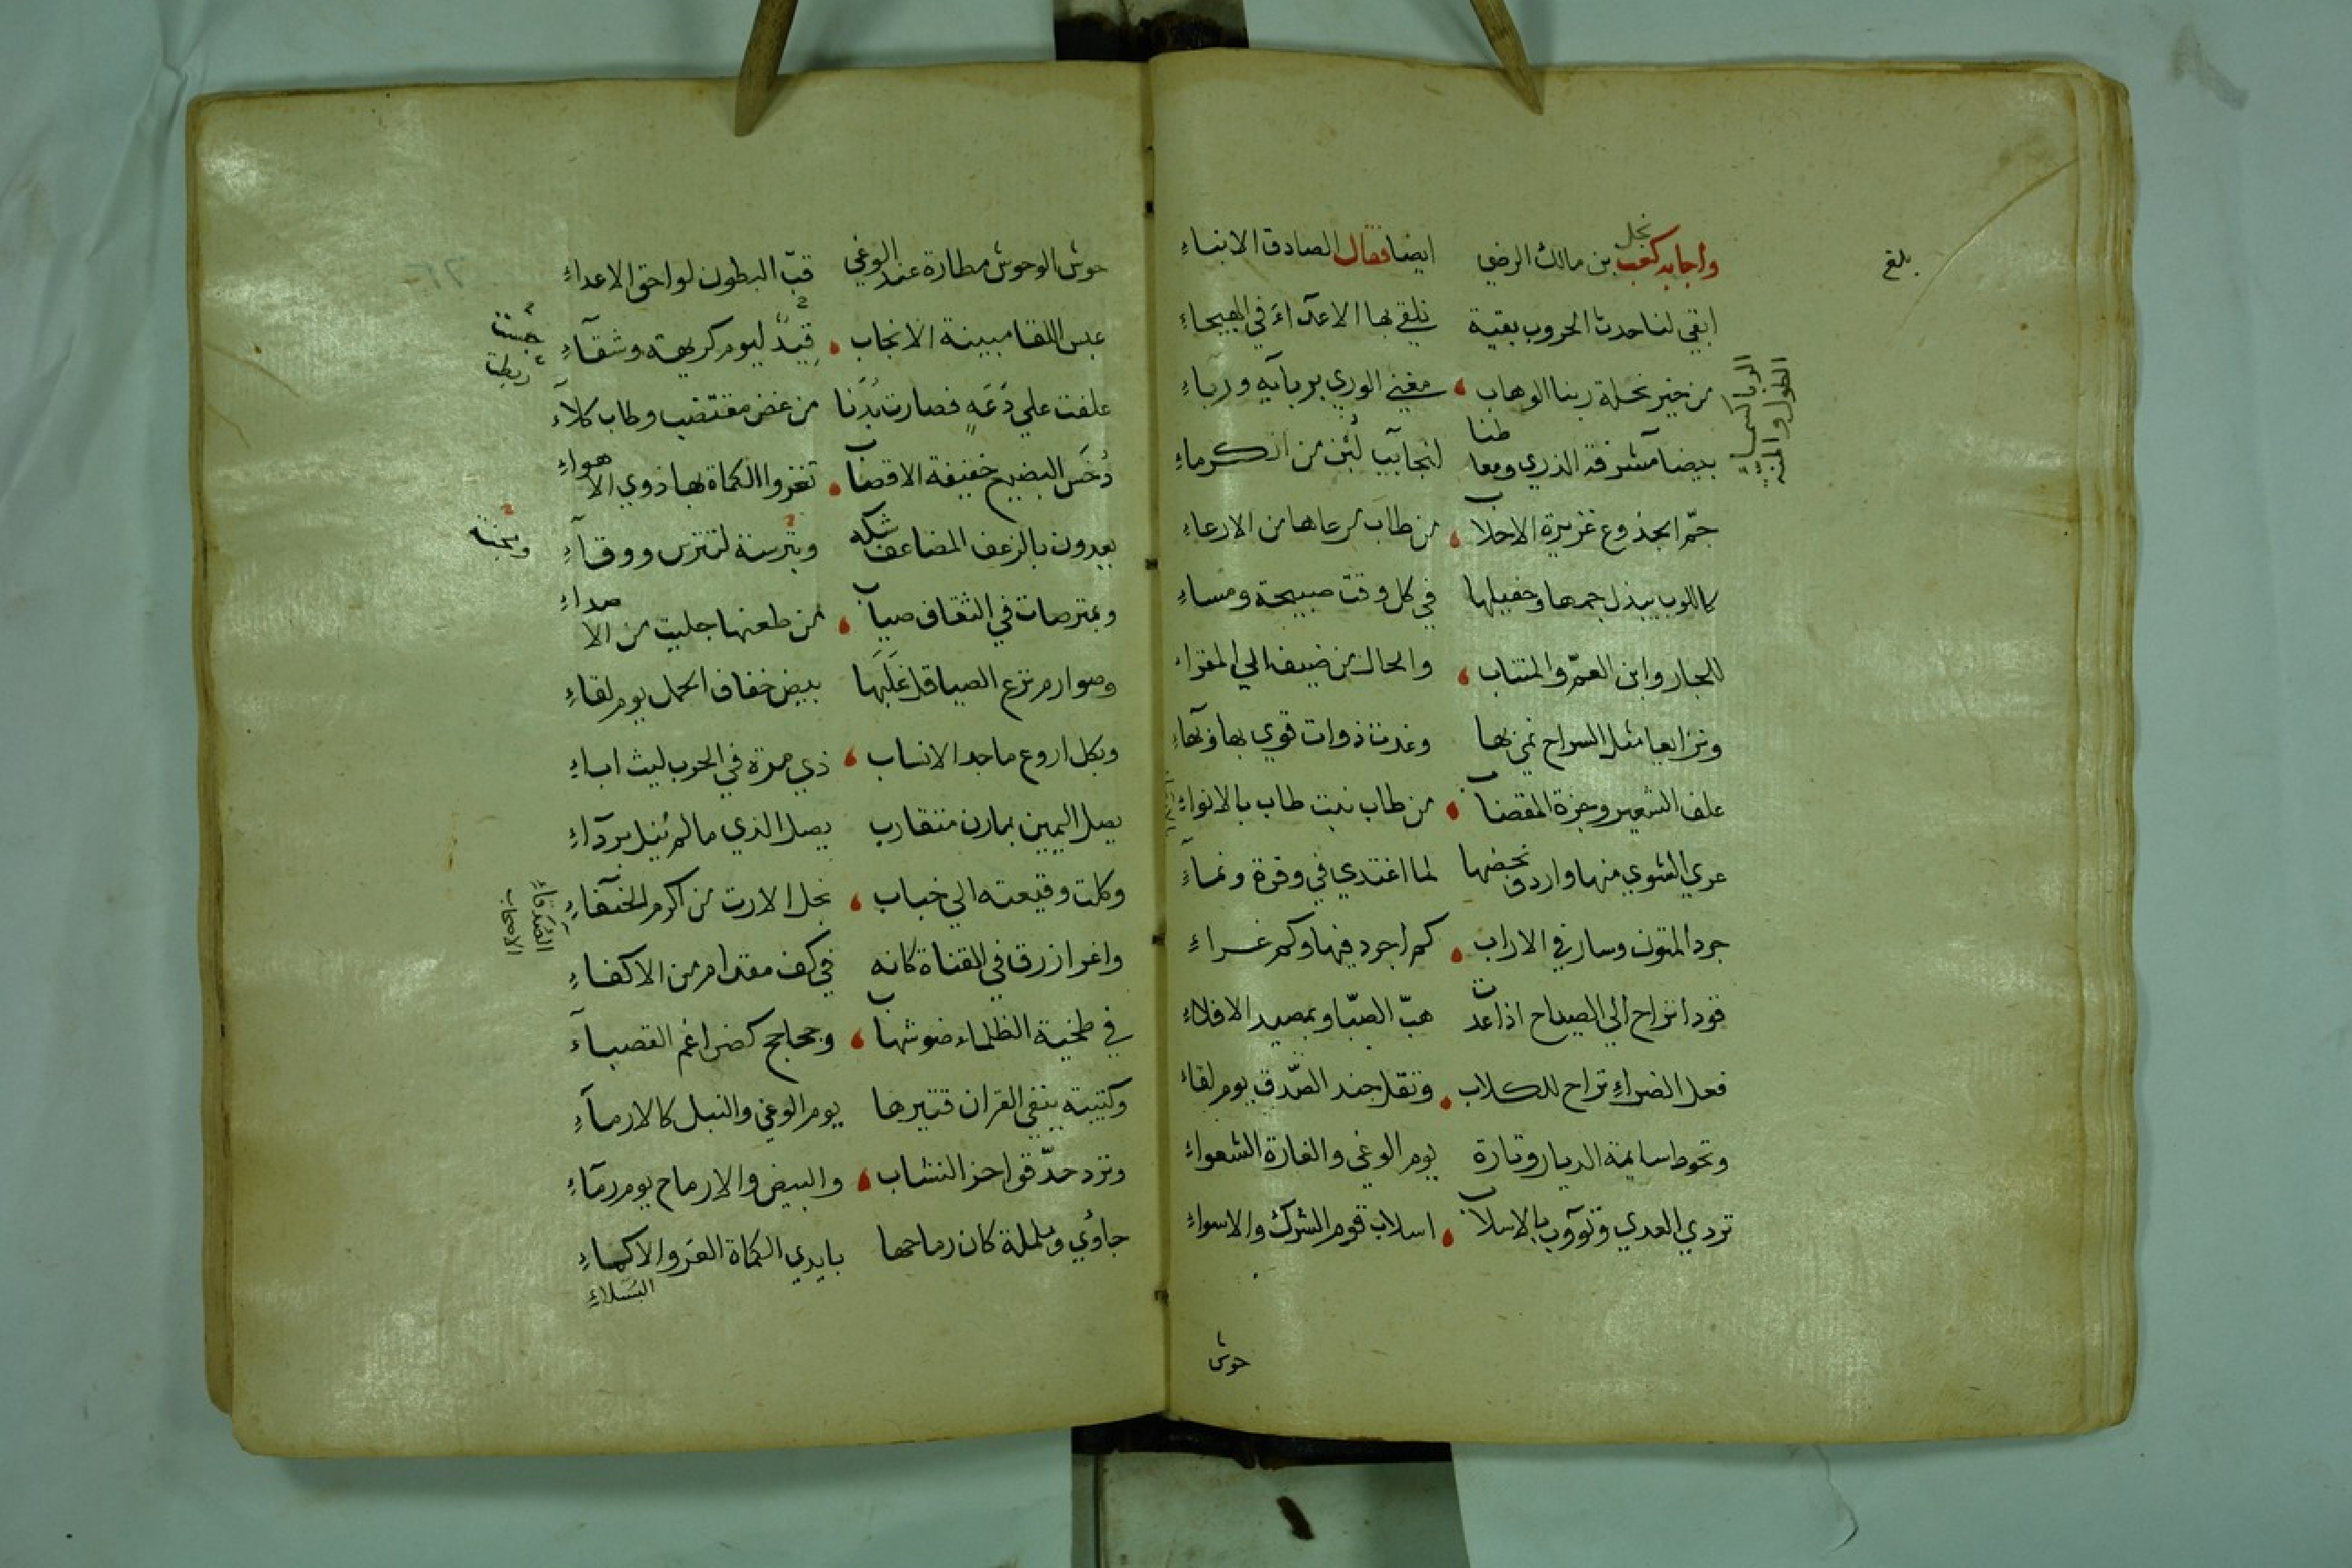 بلغ
واجابه كعب نجل بن مالك الرضى ايضا فقال الصادق الانباءِ
ابقي لنا حدث الحروب بقية نلقي بها الاعدآءَ في الهيجاءِ
من خير نحلة ربنا الوهاب مغني الوري بربآيه ورباءِ
بيضا مشرفة الذري ومعاطنا لنجآيب لُبُن من الكرماءِ
جمّ الجذوع غزيرة الاحلاب من طاب مرعاها من الارعاءِ
كاللوب يبذل جمها وحفيلها في كل وقت صبيحة ومساءِ
للجار وابن العمّ والمنتاب والحال من ضيف الي المقراء
ونزايعا مثل السراح نمي بها وغدت ذوات قوي بها وبهآءِ
علف الشعير وجزة المقضاب من طاب نبت طاب بالانواءِ
عري الشوي منها واردف نحضها لما اغتدي في وفرة ونمآءِ
جرد المتون وسار في الاراب كم اجرد فيها وكم غراءِ
قودا تراح الي الصياح اذا غدت هبّ الصّبا وبمصيد الافلاءِ
فعل الضراءِ تراح للكلاب وتقل جند الصّدق يوم لقاءِ
وتحوط سايمة الديار وتارة يوم الوغي والغارة الشعواءِ
تردي العدي وتوؤب بالاسلاب اسلاب قوم الشرك والاسواءِ
الربا بالكسر
الطول والمنة
حوش
حوش الوحوش مطارة عند الوغي قبّ البطون لواحق الاعداءِ
عبس اللقا مبينة الانجاب قيدٌ ليوم كريهة وشقآءِ
علفت علي دَعَهٍ فصارت بُدَّنا من غض مقتضب وطاب كلآءِ
دُخَس البضيع خفيفة الاقصاب تغزوا الكماة بها ذوي الاهواءِ
يعدون بالزغف المضاعف شكه وبترسة لتترس ووقآءِ
وبمترصات في الثقاف صياب من طعنها جليت من الاصداءِ
وصوارم نزع الصياقل غلبَها ببيض خفاف الحمل يوم لقاءِ
وبكل اروع ماجد الانساب ذي مرة في الحرب ليث اباءِ
يصل اليمين بمارن متقارب يصل الذي ما لم يُنل بردآءِ
وكلت وقيعته الي خباب نجل الارت من اكرم الحنفآءِ
واغر ازرق في القناة كانه في كف مقدام من الاكفاءِ
في طخية الظلماء ضو شهاب وجحاجح كضراغم القصباءِ
وكتيبة ينفي القران قتيرها يوم الوغي والنبل كالارمآءِ
وترد حدّ قواحز النشاب والبيض والارماح يوم رمآءِ
جاوُي وململة كان رماحها بايدي الكماة الغر والاكماءِ
البسلاءِ